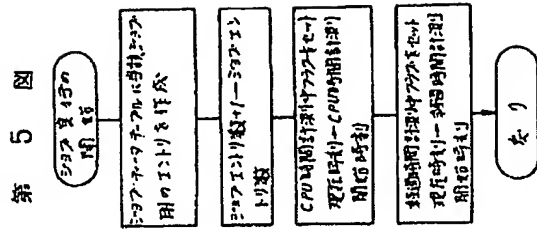 第 5 図
ジョブ実行の
開始
ジョブ・データテーブルに当該ジョブ
用のエントリを作成
ジョブエントリ数+1→ジョブエン
トリ数
CPU時間計測中フラグをセット
現在時刻→CPU時間計測
開始時刻
経過時間計測中フラグをセット
現在時刻→経過時間計測
開始時刻
戻り